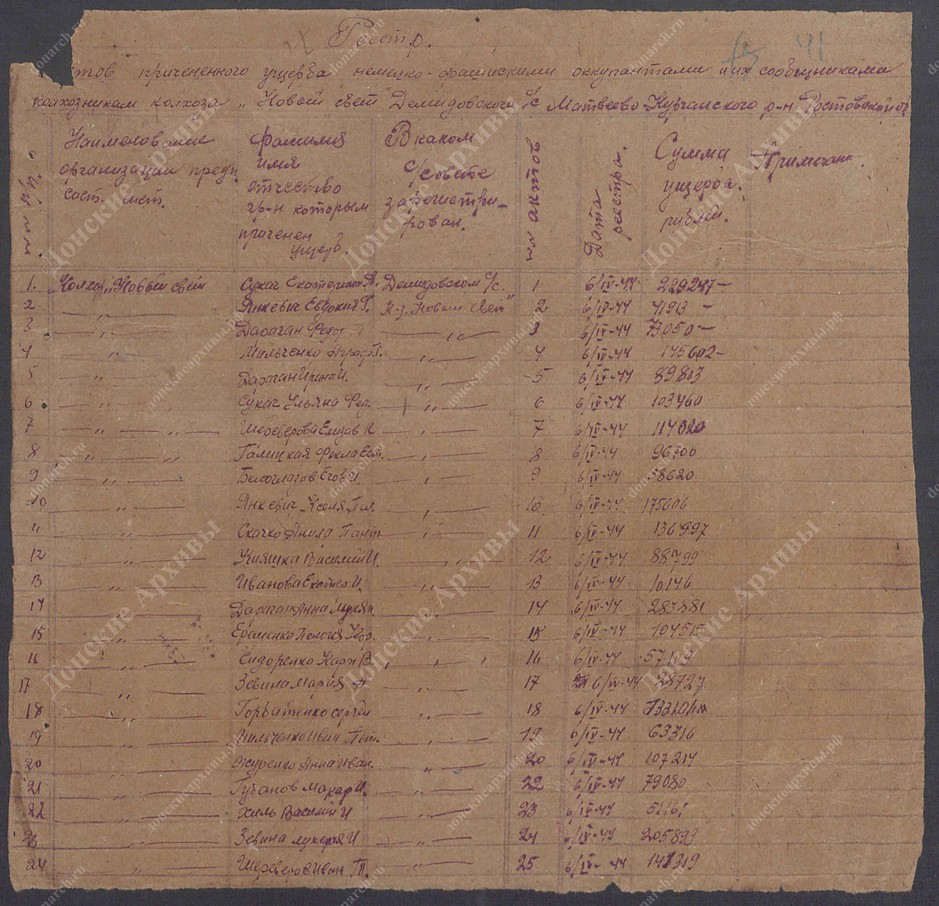 Реестр.
41
актов приченненого ущерба немецко-фашискими оккупантами и их сообщниками
колхозникам колхоза „Новый свет" Демидовского с/с Матвеево-Курганского р-н Ростовской об
№№ п/п. Наименование организации предп. сост. акт. Фамилия имя отчество гр-н которым приченен ущерб. В каком с/совете зарегистрирован. №№ актов Дата реестра. Сумма ущерба. рублей. Примечан.
1. Колхоз „Новый свет Сукач Екатерина Демидовском с/с. 1 6/IV-44 229247-
2 —„— Янкевич Евдокия Г. К-з. Новый свет" 2 6/IV-44 41913-
3 —„— Дараган Федос —„— 3 6/IV-44 73050-
4 —„— Мильченко —„— 4 6/IV-44 145602-
5 —„— Дараган Ирина И. —„— 5 6/IV-44 89803
6 —„— Сукач Ульяна Фед. —„— 6 6/IV-44 103460
7 —„— Шереверова Елизав К —„— 7 6/IV-44 114020
8 —„— Галицкая Фекла —„— 8 6/IV-44 96700
9 —„— Белоглазов Егор И. —„— 9 6/IV-44 58620
10 —„— Янкевич —„— 10 6/IV-44 175606
11 —„— Скачко —„— 11 6/IV-44 136997
12 —„— Василий И. —„— 12 6/IV-44 88799
13 —„— Иванова И. —„— 13 6/IV-44 10146
14 —„— Дараган Анна —„— 14 6/IV-44 287881
15 —„— Ерешенко —„— 15 6/IV-44 104515
16 —„— Сидоренко Карп В. —„— 16 6/IV-44
17 —„— Зевина Мария —„— 17 6/IV-44 28727
18 —„— Горбатенко Сергей —„— 18 6/IV-44
19 —„— Мильченко Иван Пет. —„— 19 6/IV-44 63316
20 —„— Журенко Анна Иван. —„— 20 6/IV-44 107214
21 —„— Гучанов Макар И. —„— 22 6/IV-44 79080
22 —„— Василий И —„— 23 6/IV-44
23 —„— Зевина Лукерья И —„— 24 6/IV-44 205899
24 —„— Шереверов Иван —„— 25 6/IV-44 141319
Донские Архивы
donarch.ru
донскиеархивы.рф